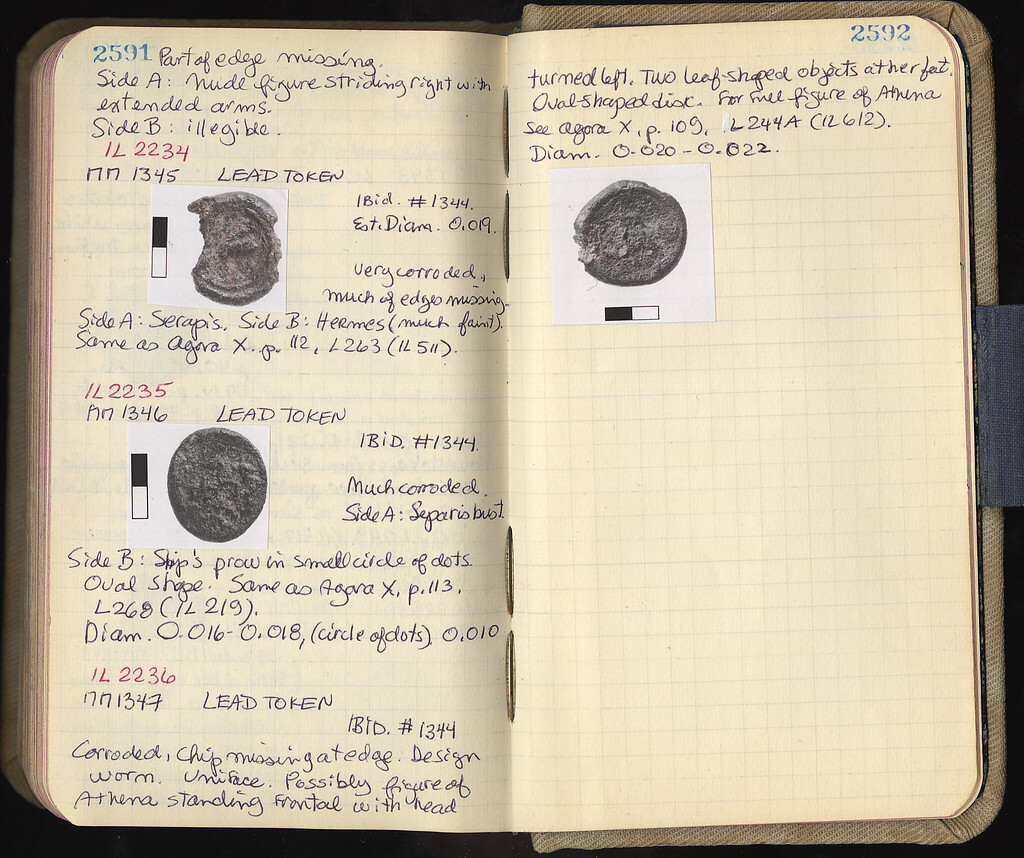 2591 Part of edge missing.
Side A: Nude figure striding right with
extended arms.
Side B: illegible.
IL 2234
ΠΠ 1345 LEAD TOKEN
IBid. #1344.
Est. Diam. 0.019.
Very corroded,
much of edges missing.
Side A: Serapis. Side B: Hermes (much faint).
Same as Agora X. p. 112, L263 (IL511).
IL2235
ΠΠ 1346 LEAD TOKEN
IBID. #1344.
Much corroded.
Side A: Separis bust.
Side B: Ship's prow in small circle of dots.
Oval Shape. Same as Agora X, p. 113,
L268 (IL 219).
Diam. 0.016-0.018, (circle of dots) 0.010
IL 2236
ΠΠ1347 LEAD TOKEN
IBID. #1344
Corroded, Chip missing at edge. Design
worn. Uniface. Possibly figure of
Athena standing frontal with head
2592
turned left. Two leaf-shaped objects at her feet.
Oval-shaped disc. For full figure of Athena
see Agora X, p. 109, L244A (IL612).
Diam. 0.020-0.022.